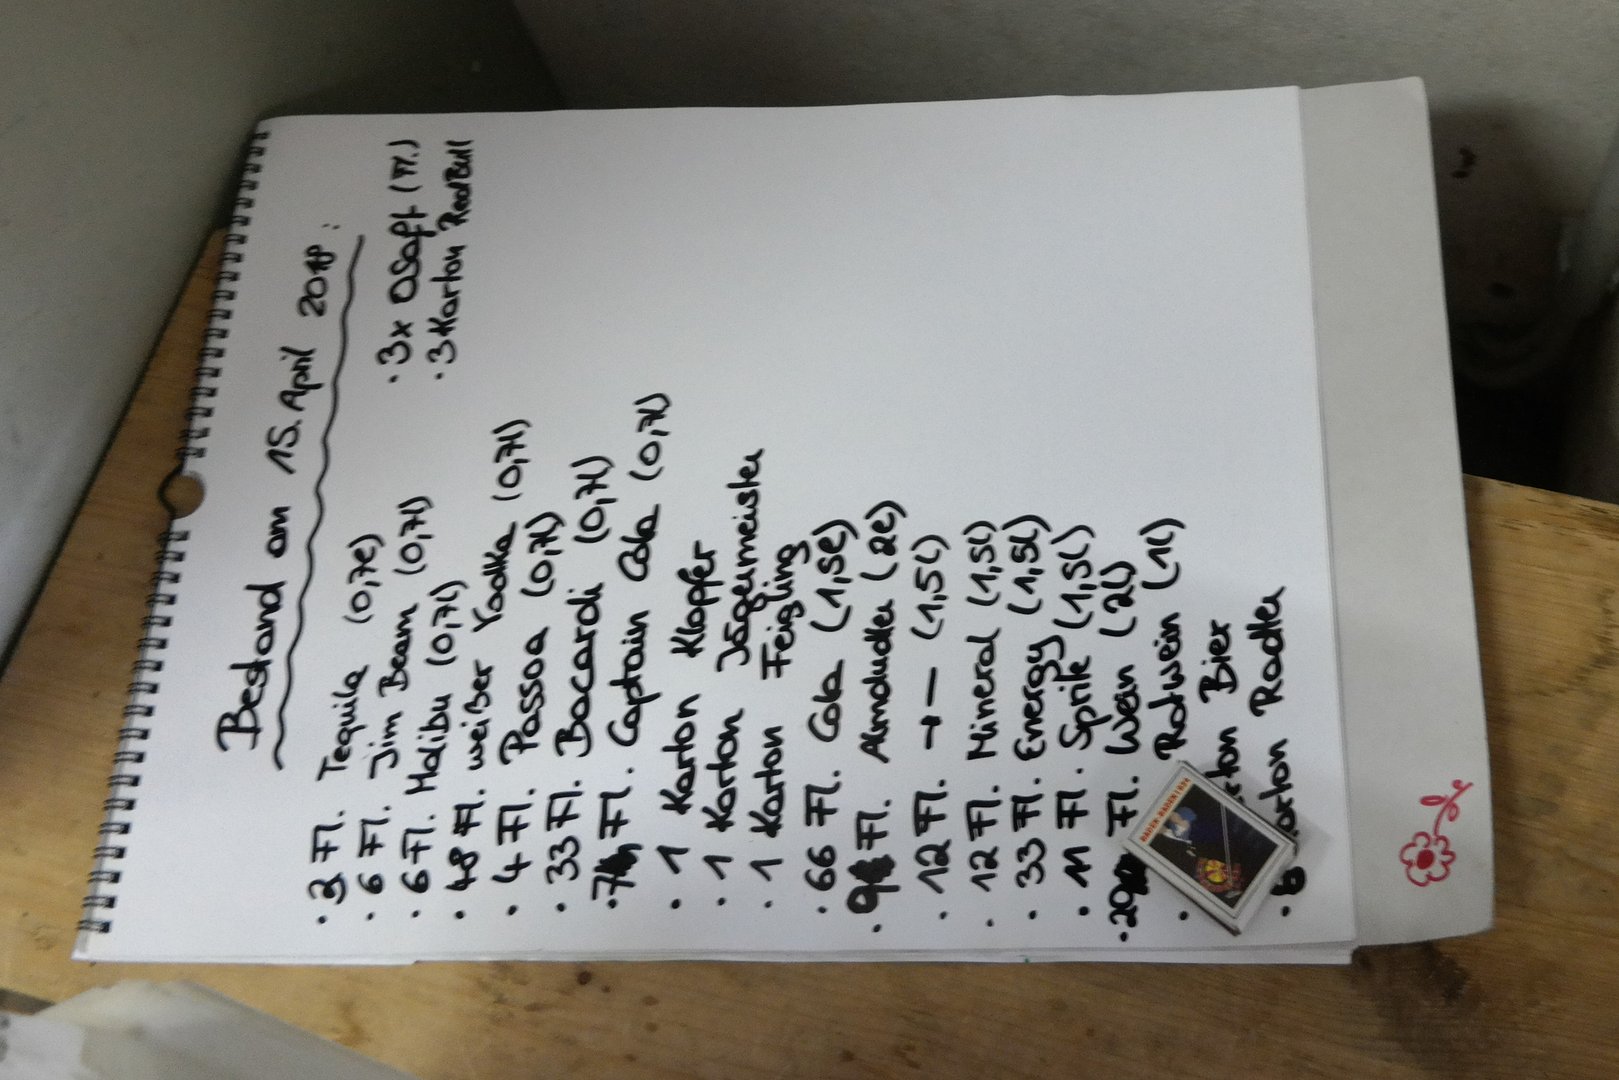 Bestand am 15. April 2018:
• 3 Fl. Tequila (0,7l)
• 6 Fl. Jim Beam (0,7l)
• 6 Fl. Malibu (0,7l)
• 48 Fl. weißer Vodka (0,7l)
• 4 Fl. Passoa (0,7l)
• 33 Fl. Bacardi (0,7l)
• 7 Fl. Captain Cola (0,7l)
• 1 Karton Klopfer
• 1 Karton Jägermeister
• 1 Karton Feigling
• 66 Fl. Cola (1,5l)
• 9 Fl. Almdudler (2l)
• 12 Fl. —"— (1,5l)
• 12 Fl. Mineral (1,5l)
• 33 Fl. Energy (1,5l)
• 11 Fl. Sprite (1,5l)
• 20 Fl. Wein (2l)
• Rotwein (1l)
rton Bier
• 6 arton Radler
• 3x OSaft (Fl.)
• 3 Karton RedBull